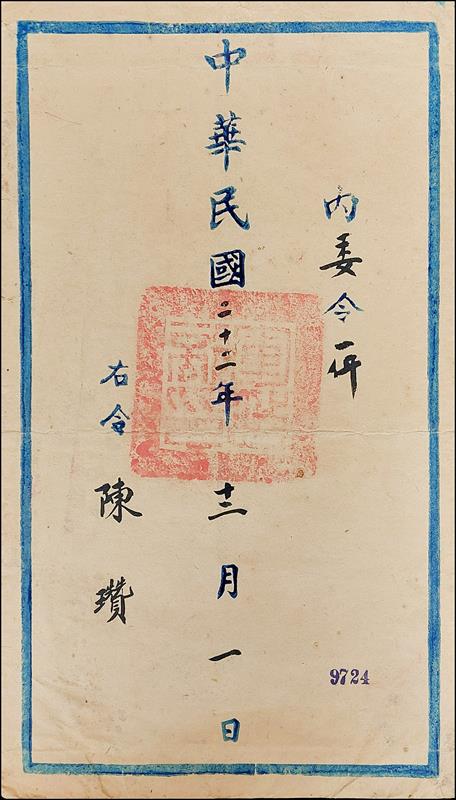 內委令一件
中華民國二十二年十二月一日
右令陳瓚
9724